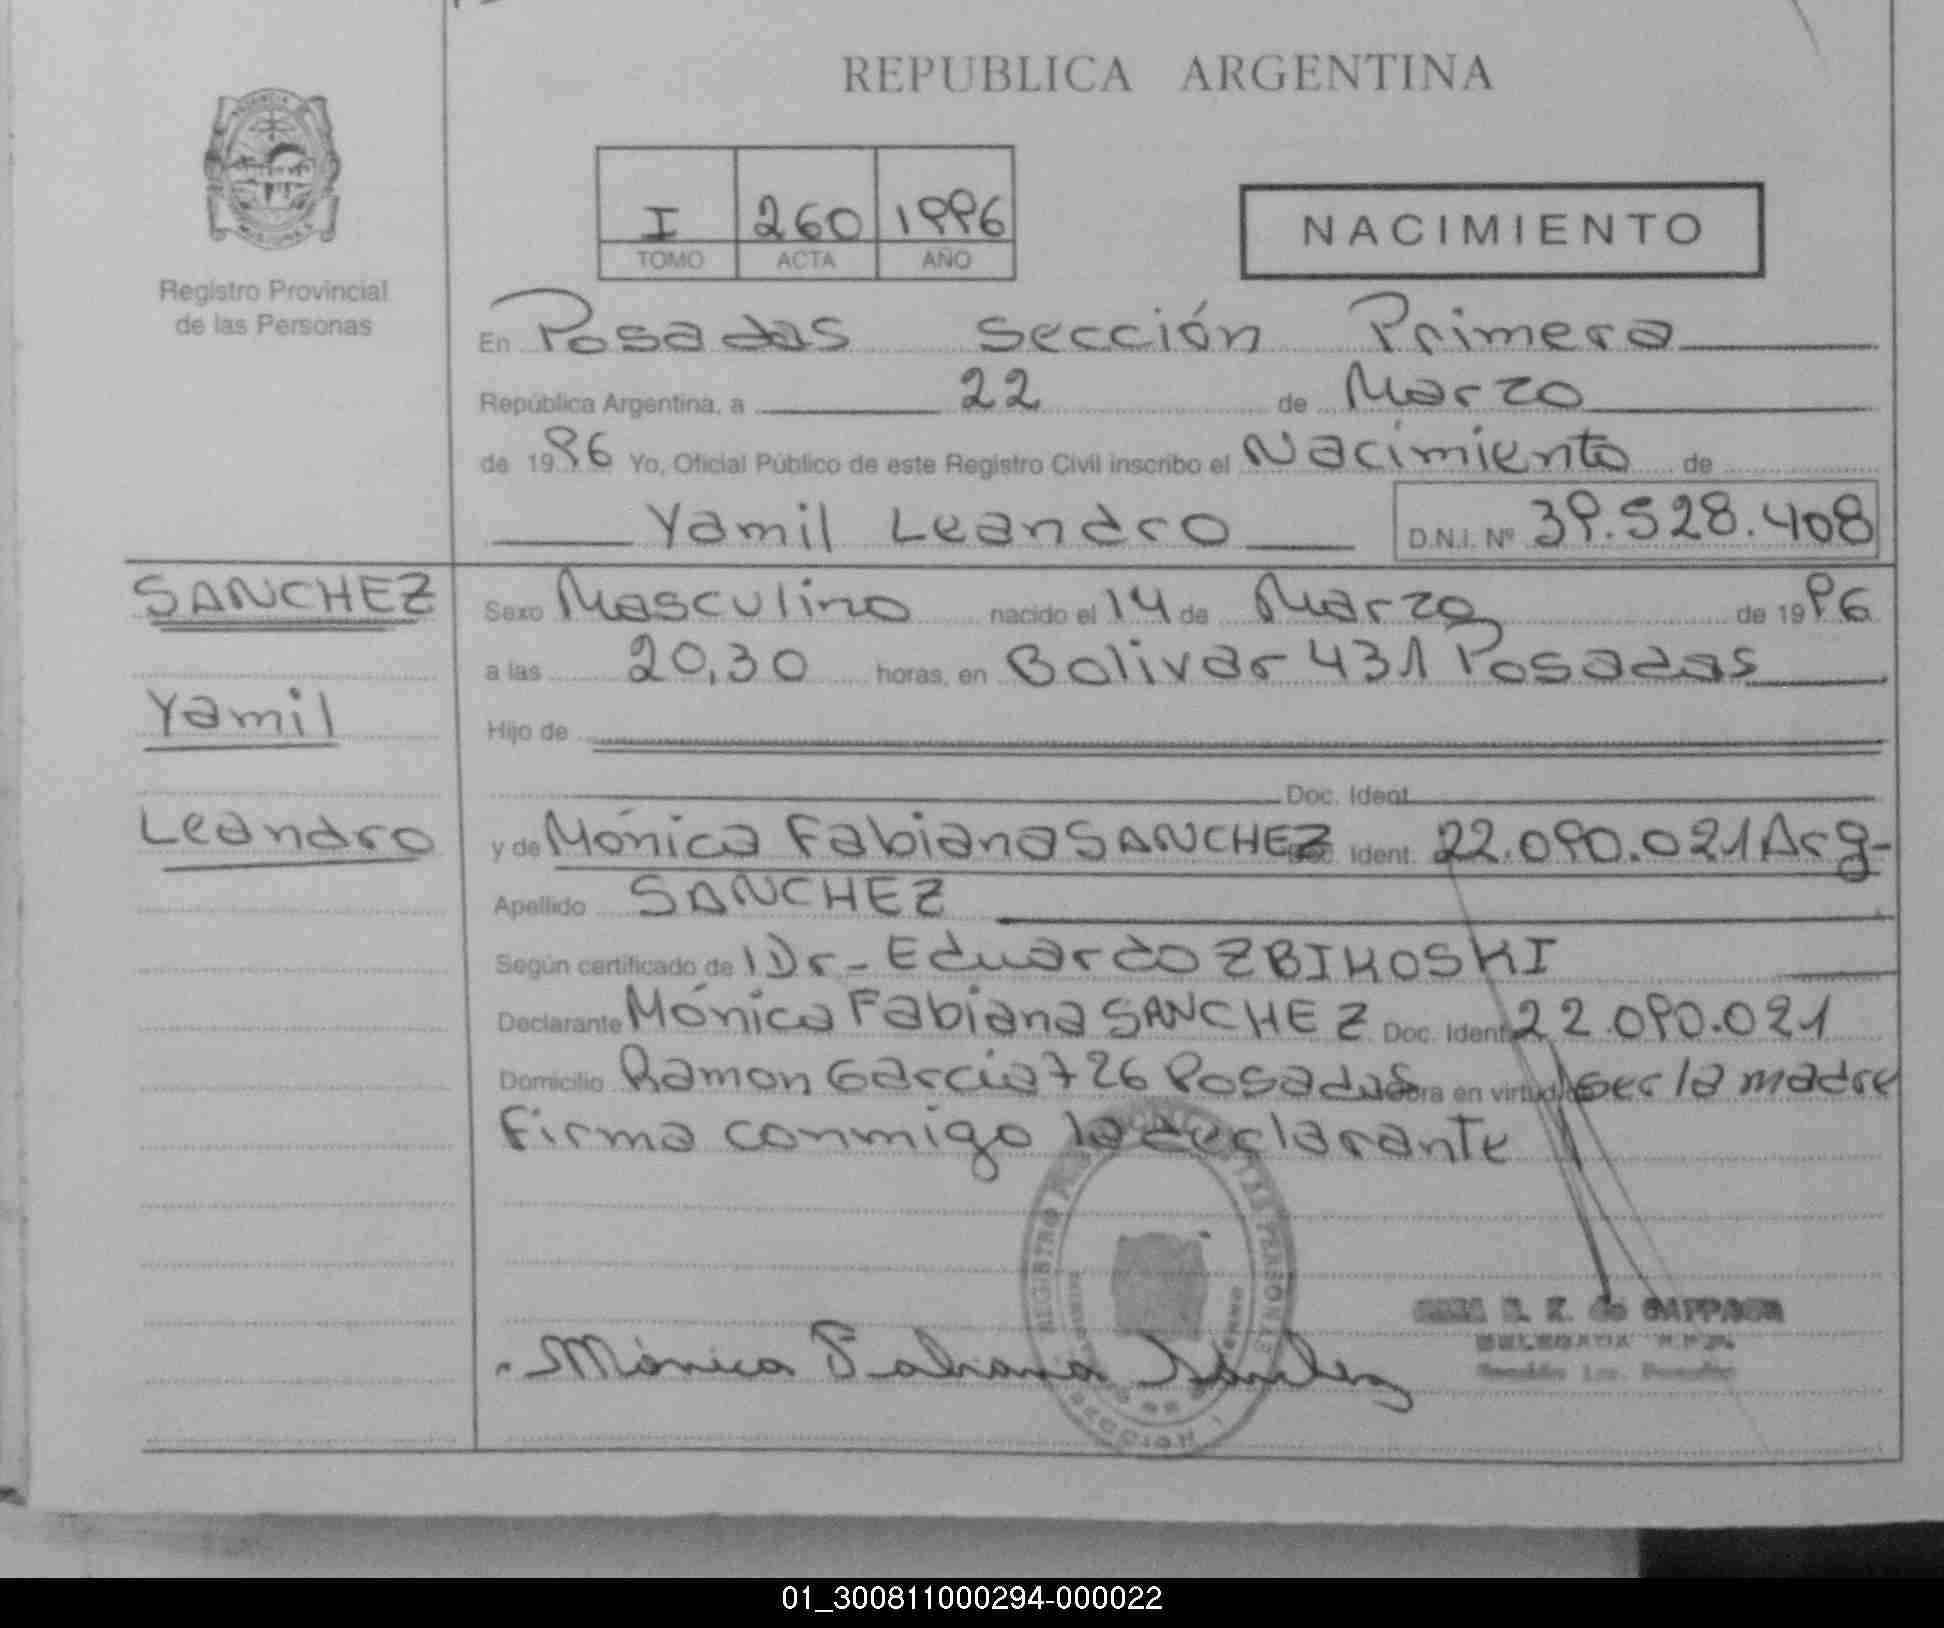 REPUBLICA ARGENTINA
I 260 1996
TOMO ACTA AÑO
NACIMIENTO
Registro Provincial
de las Personas
En Posadas Sección Primera
República Argentina, a 22 de Marzo
de 1996 Yo, Oficial Público de este Registro Civil inscribo el Nacimiento de
Yamil Leandro D.N.I. Nº 39.528.408
SANCHEZ
Yamil
Leandro
Sexo Masculino nacido el 14 de Marzo de 1996
a las 20,30 horas, en Bolivar 431 Posadas
Hijo de
Doc. Ident.
y de Mónica Fabiana SANCHEZ Doc. Ident. 22.090.021 Arg-
Apellido SANCHEZ
Según certificado de Dr- Eduardo ZBIKOSKI
Declarante Mónica Fabiana SANCHEZ Doc. Ident. 22.090.021
Domicilio Ramon Garcia 726 Posadas obra en virtud de ser la madre
Firma conmigo la declarante
REGISTRO DE LAS PERSONAS
SECCION 1
Mónica Fabiana Sánchez
DELEGADA R.P.P.
Sección 1ra. Posadas
01_300811000294-000022